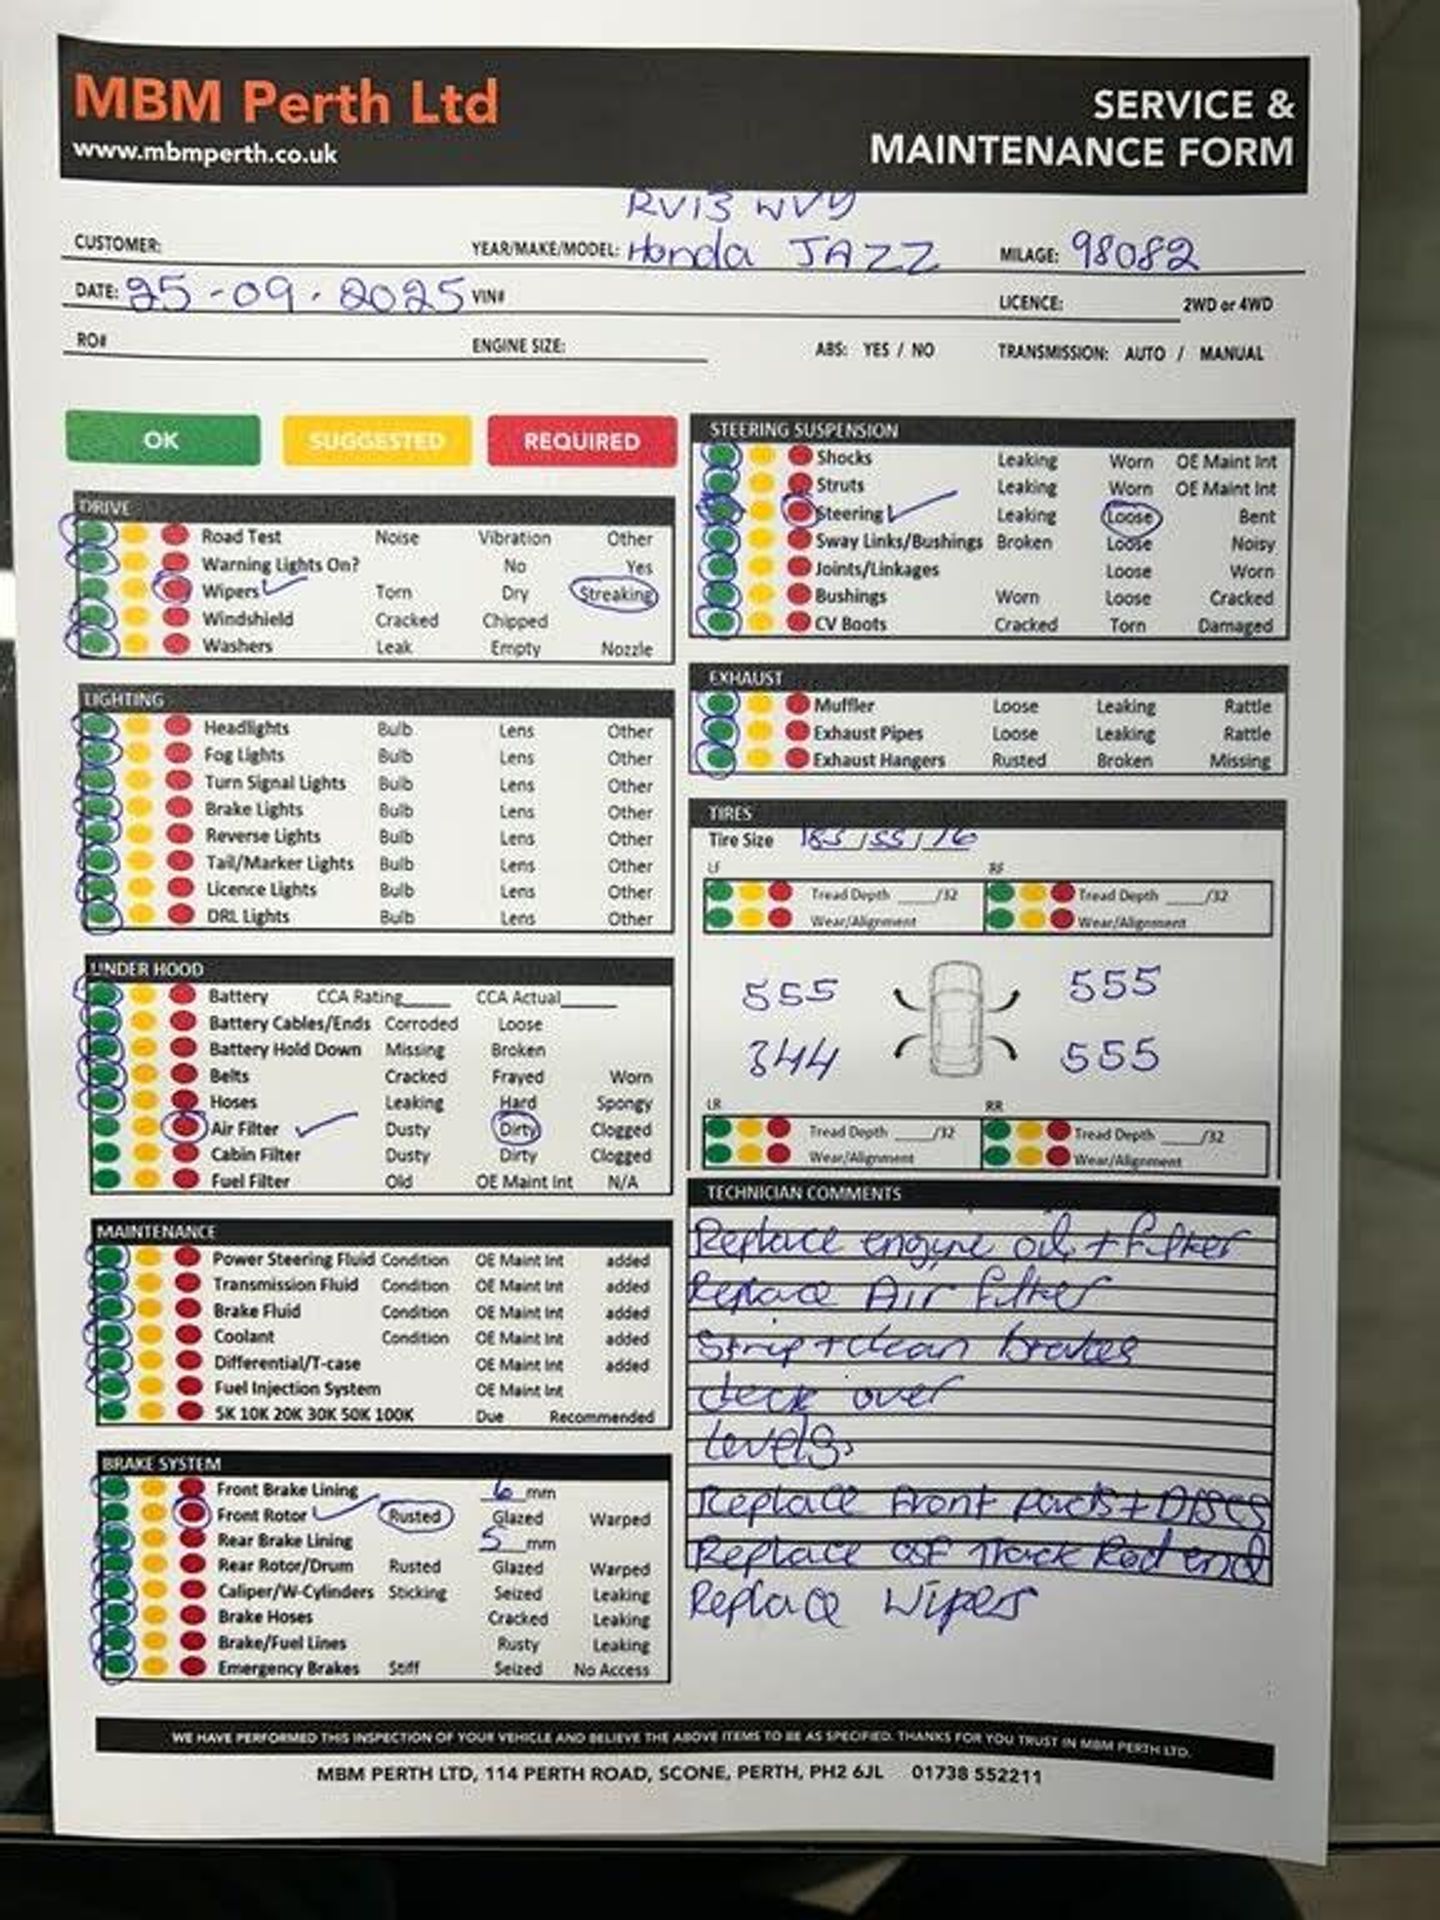 MBM Perth Ltd
www.mbmperth.co.uk
SERVICE &
MAINTENANCE FORM
RV13 WVY
CUSTOMER: YEAR/MAKE/MODEL: Honda JAZZ MILAGE: 98082
DATE: 25-09.2025 VIN# LICENCE: 2WD or 4WD
RO# ENGINE SIZE: ABS: YES / NO TRANSMISSION: AUTO / MANUAL
OK SUGGESTED REQUIRED
DRIVE
Road Test Noise Vibration Other
Warning Lights On? No Yes
Wipers Torn Dry Streaking
Windshield Cracked Chipped
Washers Leak Empty Nozzle
LIGHTING
Headlights Bulb Lens Other
Fog Lights Bulb Lens Other
Turn Signal Lights Bulb Lens Other
Brake Lights Bulb Lens Other
Reverse Lights Bulb Lens Other
Tail/Marker Lights Bulb Lens Other
Licence Lights Bulb Lens Other
DRL Lights Bulb Lens Other
UNDER HOOD
Battery CCA Rating____ CCA Actual____
Battery Cables/Ends Corroded Loose
Battery Hold Down Missing Broken
Belts Cracked Frayed Worn
Hoses Leaking Hard Spongy
Air Filter Dusty Dirty Clogged
Cabin Filter Dusty Dirty Clogged
Fuel Filter Old OE Maint Int N/A
MAINTENANCE
Power Steering Fluid Condition OE Maint Int added
Transmission Fluid Condition OE Maint Int added
Brake Fluid Condition OE Maint Int added
Coolant Condition OE Maint Int added
Differential/T-case OE Maint Int added
Fuel Injection System OE Maint Int
5K 10K 20K 30K 50K 100K Due Recommended
BRAKE SYSTEM
Front Brake Lining 6 mm
Front Rotor Rusted Glazed Warped
Rear Brake Lining 5 mm
Rear Rotor/Drum Rusted Glazed Warped
Caliper/W-Cylinders Sticking Seized Leaking
Brake Hoses Cracked Leaking
Brake/Fuel Lines Rusty Leaking
Emergency Brakes Stiff Seized No Access
STEERING SUSPENSION
Shocks Leaking Worn OE Maint Int
Struts Leaking Worn OE Maint Int
Steering Leaking Loose Bent
Sway Links/Bushings Broken Loose Noisy
Joints/Linkages Loose Worn
Bushings Worn Loose Cracked
CV Boots Cracked Torn Damaged
EXHAUST
Muffler Loose Leaking Rattle
Exhaust Pipes Loose Leaking Rattle
Exhaust Hangers Rusted Broken Missing
TIRES
Tire Size 185/55/16
LF RF
Tread Depth ____/32 Tread Depth ____/32
Wear/Alignment Wear/Alignment
555 555
344 555
LR RR
Tread Depth ____/32 Tread Depth ____/32
Wear/Alignment Wear/Alignment
TECHNICIAN COMMENTS
Replace engine oil + filter
Replace Air filter
Strip + clean brakes
check over
levels.
Replace front pads + Discs
Replace OSF Track Rod end
Replace Wipers
WE HAVE PERFORMED THIS INSPECTION OF YOUR VEHICLE AND BELIEVE THE ABOVE ITEMS TO BE AS SPECIFIED. THANKS FOR YOU TRUST IN MBM PERTH LTD.
MBM PERTH LTD, 114 PERTH ROAD, SCONE, PERTH, PH2 6JL 01738 552211